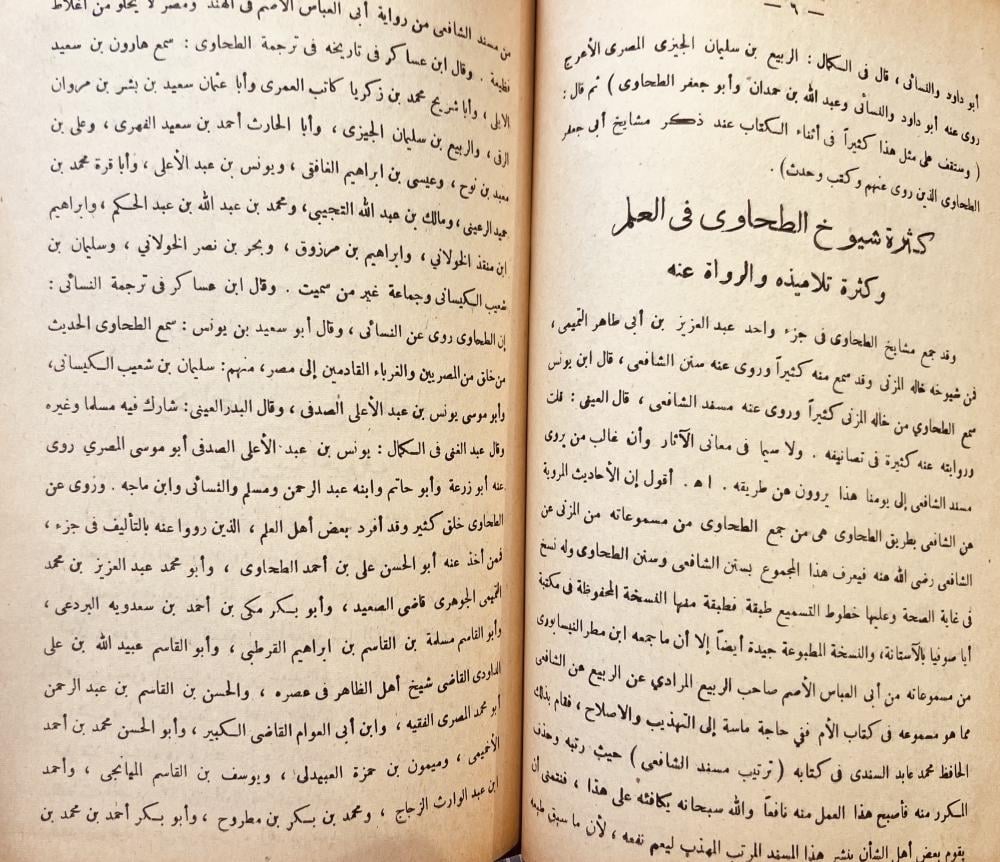 — ٦ —
أبو داود والنسائى ، قال فى الكمال : الربيع بن سليمان الجيزى المصرى الأعرج
روى عنه أبو داود والنسائى وعبد الله بن حمدان وأبو جعفر الطحاوى ) ثم قال :
( وستقف على مثل هذا كثيراً فى أثناء الكتاب عند ذكر مشايخ أبى جعفر
الطحاوى الذين روى عنهم وكتب وحدث) .
كثرة شيوخ الطحاوى فى العلم
وكثرة تلاميذه والرواة عنه
وقد جمع مشايخ الطحاوى فى جزء واحد عبد العزيز بن أبى طاهر التميمى ،
فمن شيوخه خاله المزنى وقد سمع منه كثيراً وروى عنه سنن الشافعى ، قال ابن يونس
سمع الطحاوي من خاله المزنى كثيراً وروى عنه مسند الشافعى ، قال العينى : قلت
وروايته عنه كثيرة فى تصانيفه . ولا سيما فى معانى الآثار وأن غالب من يروى
مسند الشافعى إلى يومنا هذا يروون عن طريقه . ا ه . أقول إن الأحاديث المروية
عن الشافعى بطريق الطحاوى هى من جمع الطحاوى من مسموعاته من المزنى عن
الشافعى رضى الله عنه فيعرف هذا المجموع بسنن الشافعى وسنن الطحاوى وله نسخ
فى غاية الصحة وعليها خطوط التسميع طبقة فطبقة منها النسخة المحفوظة فى مكتبة
أيا صوفيا بالآستانة، والنسخة المطبوعة جيدة أيضاً إلا أن ما جمعه ابن مطر النيسابورى
من مسموعاته من أبى العباس الأصم صاحب الربيع المرادي عن الربيع عن الشافعى
مما هو مسموعه فى كتاب الأم ففي حاجة ماسة إلى التهذيب والاصلاح ، فقام بذلك
الحافظ محمد عابد السندى فى كتابه ( ترتيب مسند الشافعى ) حيث رتبه وحذف
المكرر منه فأصبح هذا العمل منه نافعاً والله سبحانه يكافئه على هذا ، فنتمنى أن
يقوم بعض أهل الشأن بنشر هذا المسند المرتب المهذب ليعم نفعه ، لأن ما سبق طبعه
من مسند الشافعى من رواية أبى العباس الأصم فى الهند ومصر لا يخلو من أغلاط
فظيعة . وقال ابن عساكر فى تاريخه فى ترجمة الطحاوى : سمع هارون بن سعيد
الايلى ، وأبا شريح محمد بن زكريا كاتب العمرى وأبا عثمان سعيد بن بشر بن مروان
الرقى ، والربيع بن سليمان الجيزى ، وأبا الحارث أحمد بن سعيد الفهرى ، وعلى بن
معبد بن نوح ، وعيسى بن ابراهيم الغافقى ، ويونس بن عبد الأعلى ، وأبا قرة محمد بن
حميد الرعينى ، ومالك بن عبد الله التجيبى، ومحمد بن عبد الله بن عبد الحكم ، وابراهيم
ابن منقذ الخولاني ، وابراهيم بن مرزوق ، وبحر بن نصر الخولاني ، وسليمان بن
شعيب الكيسانى وجماعة غير من سميت . وقال ابن عساكر فى ترجمة النسائى :
إن الطحاوى روى عن النسائى ، وقال أبو سعيد بن يونس : سمع الطحاوى الحديث
من خلق من المصريين والغرباء القادمين إلى مصر، منهم: سليمان بن شعيب الكيسانى،
وأبو موسى يونس بن عبد الأعلى الصدفى ، وقال البدر العينى: شارك فيه مسلما وغيره
وقال عبد الغنى فى الكمال : يونس بن عبد الأعلى الصدفى أبو موسى المصري روى
عنه أبو زرعة وأبو حاتم وابنه عبد الرحمن ومسلم والنسائى وابن ماجه . وروى عن
الطحاوى خلق كثير وقد أفرد بعض أهل العلم ، الذين رووا عنه بالتأليف فى جزء ،
فمن أخذ عنه أبو الحسن على بن أحمد الطحاوى ، وأبو محمد عبد العزيز بن محمد
التميمى الجوهرى قاضى الصعيد ، وأبو بكر مكى بن أحمد بن سعدويه البردعى ،
وأبو القاسم مسلمة بن القاسم بن ابراهيم القرطبى ، وأبو القاسم عبيد الله بن على
الداودى القاضى شيخ أهل الظاهر فى عصره ، والحسن بن القاسم بن عبد الرحمن
أبو محمد المصرى الفقيه ، وابن أبى العوام القاضى الكبير ، وأبو الحسن محمد بن أحمد
الأخميمى ، وميمون بن حمزة العبيدلى ، ويوسف بن القاسم الميانجى ، وأحمد
ابن عبد الوارث الزجاج ، ومحمد بن بكر بن مطروح ، وأبو بكر أحمد بن محمد بن